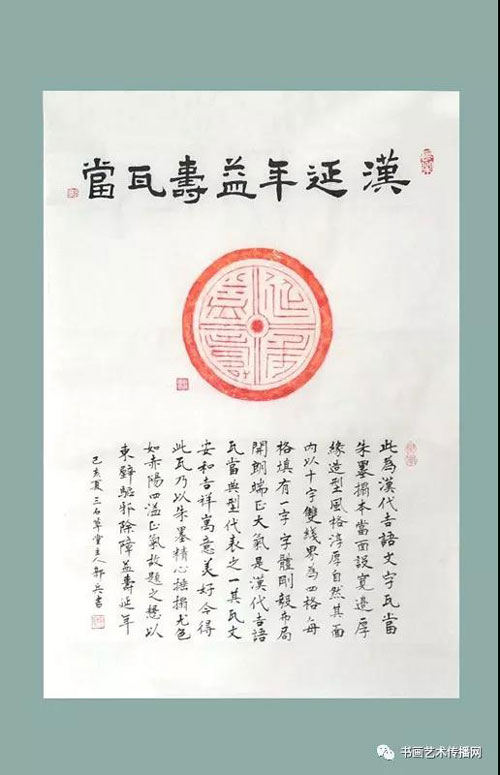 漢延年益壽瓦當
延年
益壽
此為漢代吉語文字瓦當
朱墨搨本當面設寬邊厚
緣造型風格淳厚自然其面
内以十字雙线界為四格每
格填有一字字體剛毅布局
開朗端正大氣是漢代吉語
瓦當典型代表之一其瓦文
安和吉祥寓意美好今得
此瓦乃以朱墨精心捶搨尤色
如赤陽四溢正氣故题之懸以
東壁驅邪除障益壽延年
己亥夏三石草堂主人郭兵書
书画艺术传播网